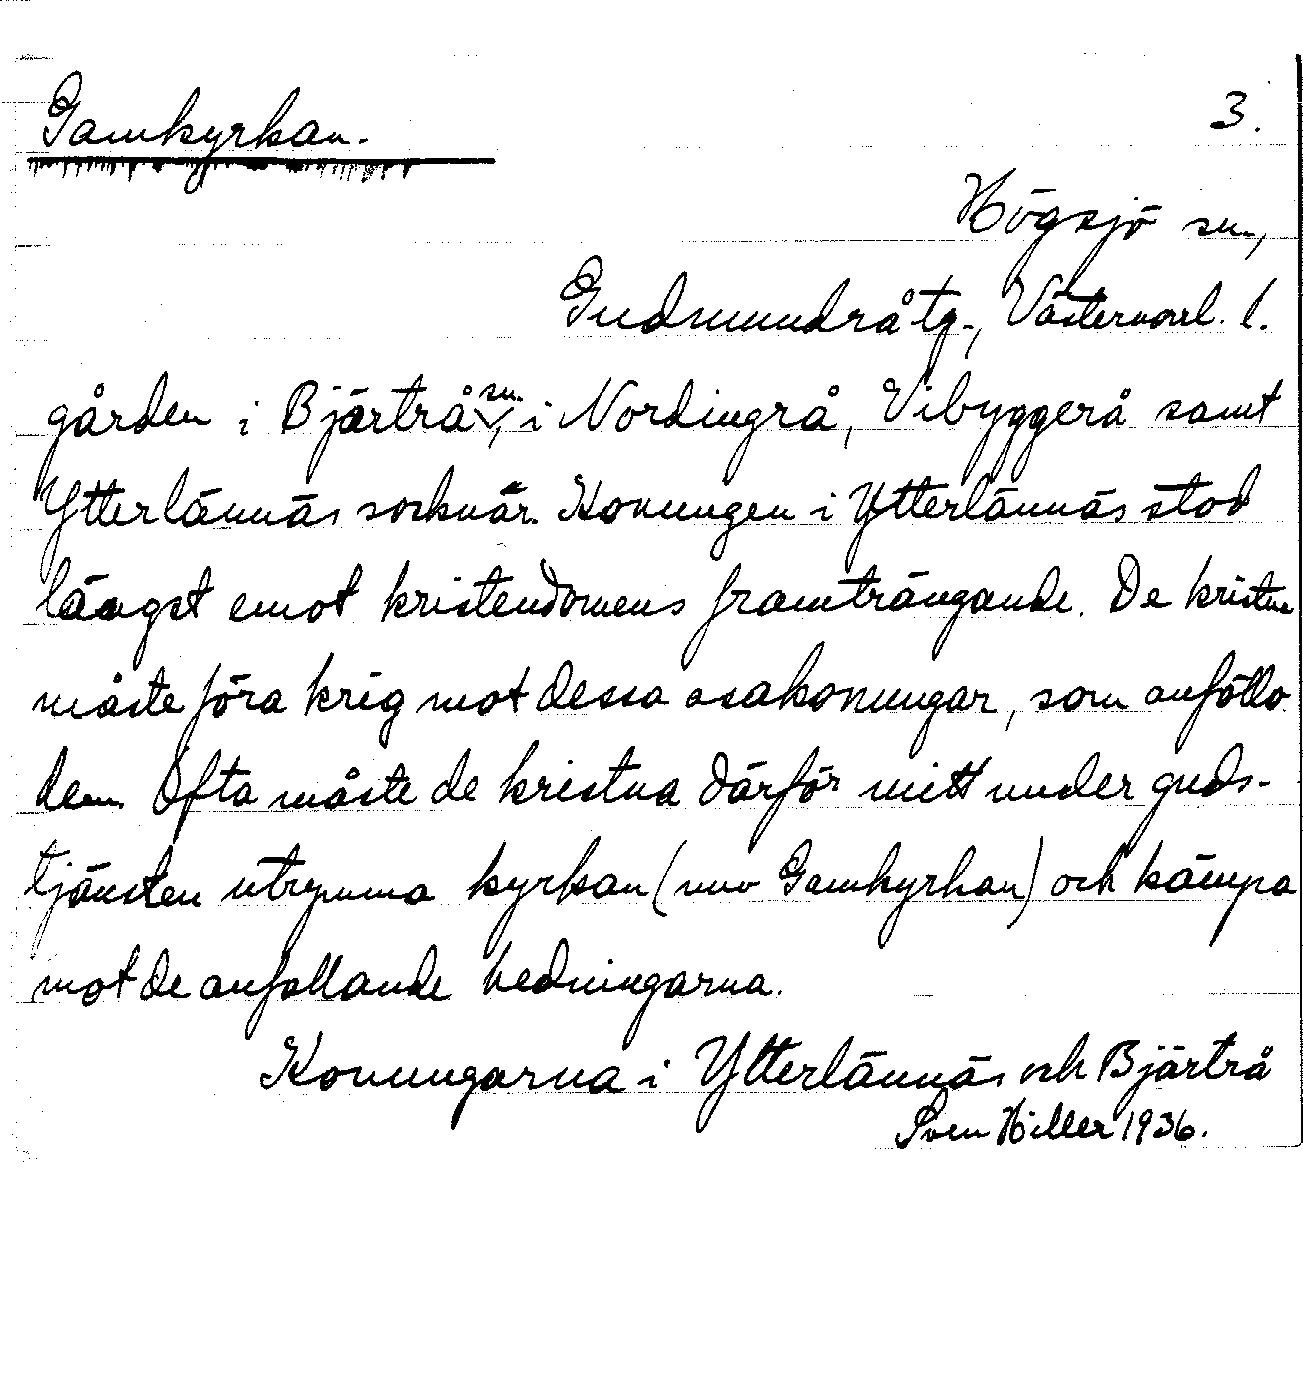 Gamkyrkan. 3.
Högsjö sn,
Gudmundrå tg., Västernorrl. l.
gården i Bjärtrå sn, i Nordingrå, Vibyggerå samt
Ytterlännäs socknär. Konungen i Ytterlännäs stod
längst emot kristendomens framträngande. De kristna
måste föra krig mot dessa asakonungar, som anföllo
dem. Ofta måste de kristna därför mitt under guds-
tjänsten utrymma kyrkan (nuv Gamkyrkan) och kämpa
mot de anfallande hedningarna.
Konungarna i Ytterlännäs och Bjärtrå
Sven Hiller 1936.